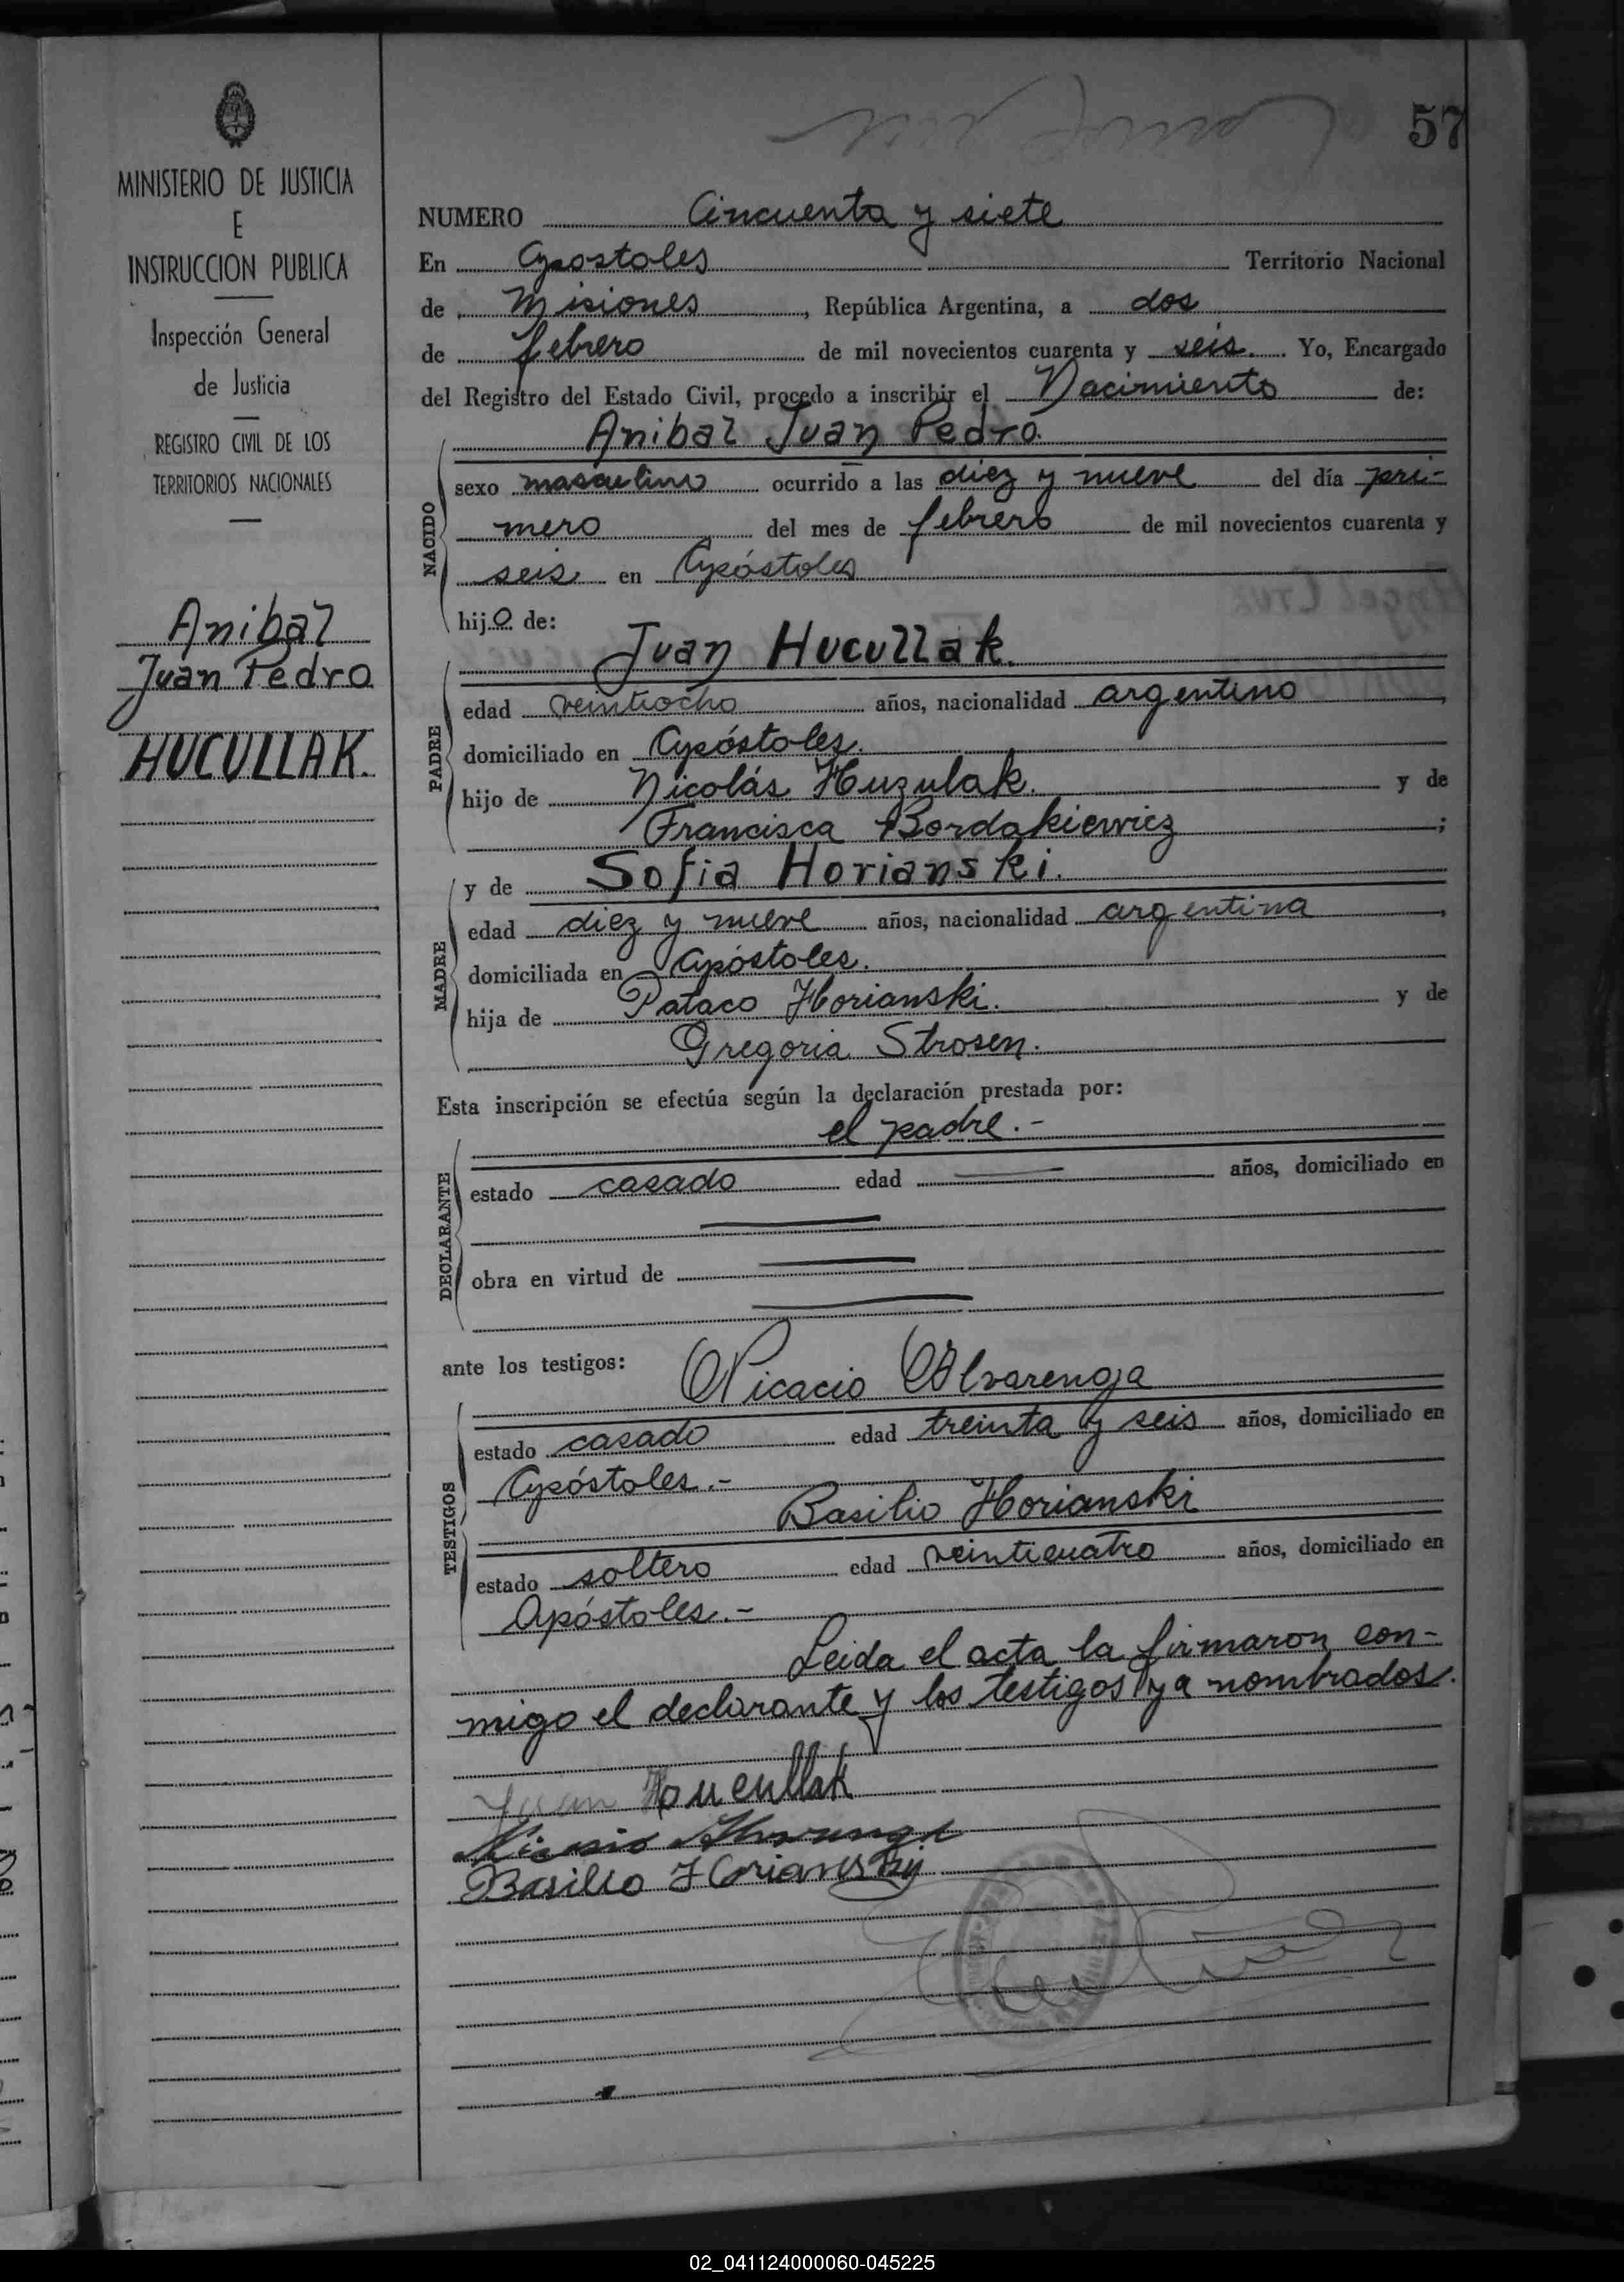 MINISTERIO DE JUSTICIA
E
INSTRUCCION PUBLICA
Inspección General
de Justicia
REGISTRO CIVIL DE LOS
TERRITORIOS NACIONALES
Anibal
Juan Pedro
HUCULLAK.
57
NUMERO Cincuenta y siete
En Apostoles Territorio Nacional
de Misiones, República Argentina, a dos
de febrero de mil novecientos cuarenta y seis. Yo, Encargado
del Registro del Estado Civil, procedo a inscribir el Nacimiento de:
Anibal Juan Pedro.
NACIDO
sexo masculino ocurrido a las diez y nueve del día pri-
mero del mes de febrero de mil novecientos cuarenta y
seis en Apóstoles
hijo de:
Juan Hucullak.
PADRE
edad veintiocho años, nacionalidad argentino,
domiciliado en Apóstoles.
hijo de Nicolás Huzulak. y de
Francisca Bordakiewicz;
y de Sofia Horianski.
MADRE
edad diez y nueve años, nacionalidad argentina,
domiciliada en Apóstoles.
hija de Pataco Horianski. y de
Gregoria Strosen.
Esta inscripción se efectúa según la declaración prestada por:
el padre.-
DECLARANTE
estado casado edad años, domiciliado en
obra en virtud de
ante los testigos: Nicacio Alvarenga
TESTIGOS
estado casado edad treinta y seis años, domiciliado en
Apóstoles.-
Basilio Horianski
estado soltero edad veinticuatro años, domiciliado en
Apóstoles.-
Leida el acta la firmaron con-
migo el declarante y los testigos ya nombrados.
Juan Hucullak
Nicasio Alvarenga
Basilio Horianski
02_041124000060-045225